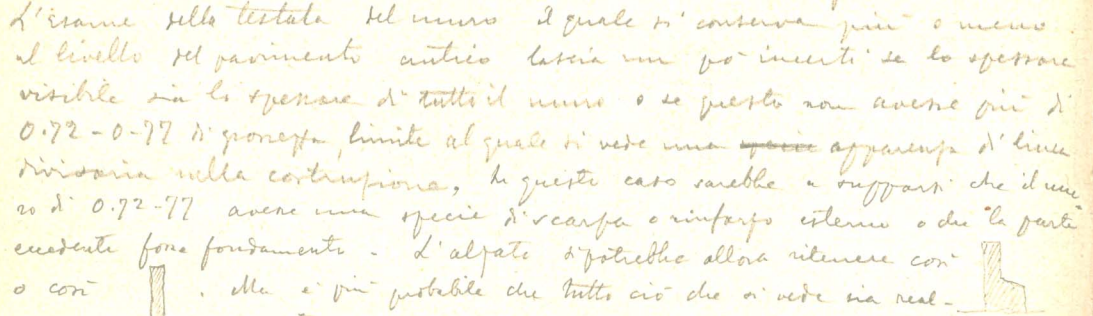 L'esame della testata del muro il quale si conserva più o meno
al livello del pavimento antico lascia un pò incerti se lo spessore
visibile sia lo spessore di tutto il muro o se questo non avesse più di
0.72-0-77 di grossezza, limite al quale si vede una specie apparenza di linea
divisoria nella costruzione. In questo caso sarebbe a supporsi che il mu-
ro di 0.72-77 avesse una specie di scarpa o rinforzo esterno o che la parte
eccedente fosse fondamento. L'alzato si potrebbe allora ritenere così
o così . Ma è più probabile che tutto ciò che si vede sia real-